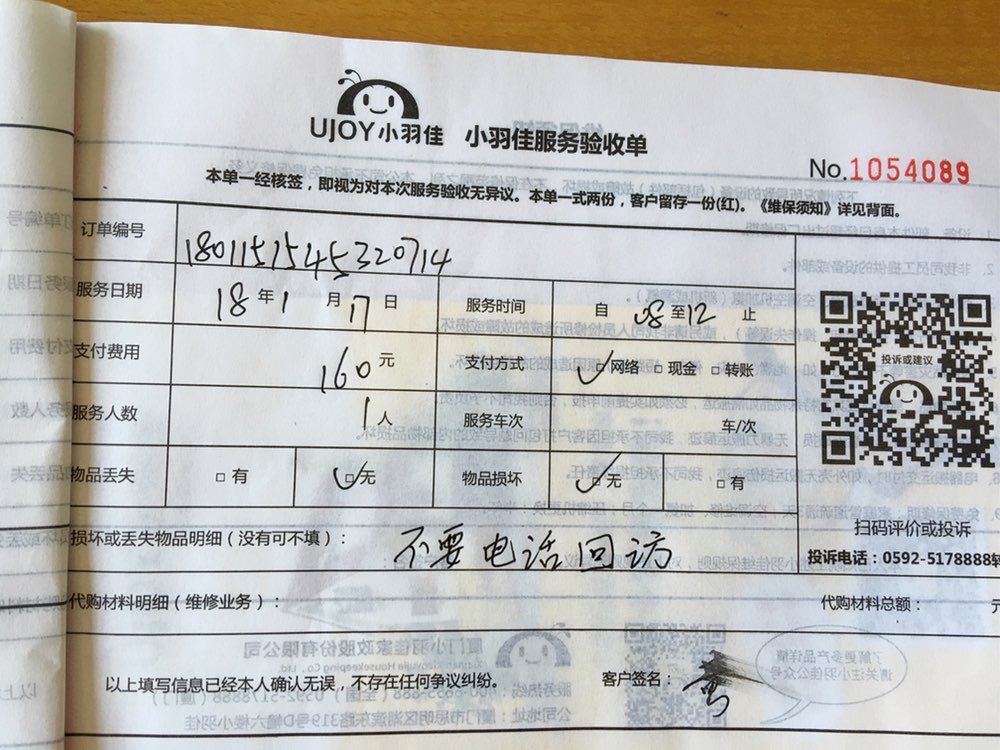 UJOY小羽佳 小羽佳服务验收单
No.1054089
本单一经核签，即视为对本次服务验收无异议。本单一式两份，客户留存一份(红)。《维保须知》详见背面。
订单编号 1801151545320714
服务日期 18年1月17日 服务时间 自08至12止
支付费用 160元 支付方式 ☑网络 □现金 □转账
投诉或建议
服务人数 1人 服务车次 车/次
物品丢失 □有 ☑无 物品损坏 ☑无 □有
扫码评价或投诉
损坏或丢失物品明细（没有可不填）： 不要电话回访
投诉电话：0592-5178888转
代购材料明细（维修业务）： 代购材料总额： 元
以上填写信息已经本人确认无误，不存在任何争议纠纷。 客户签名：